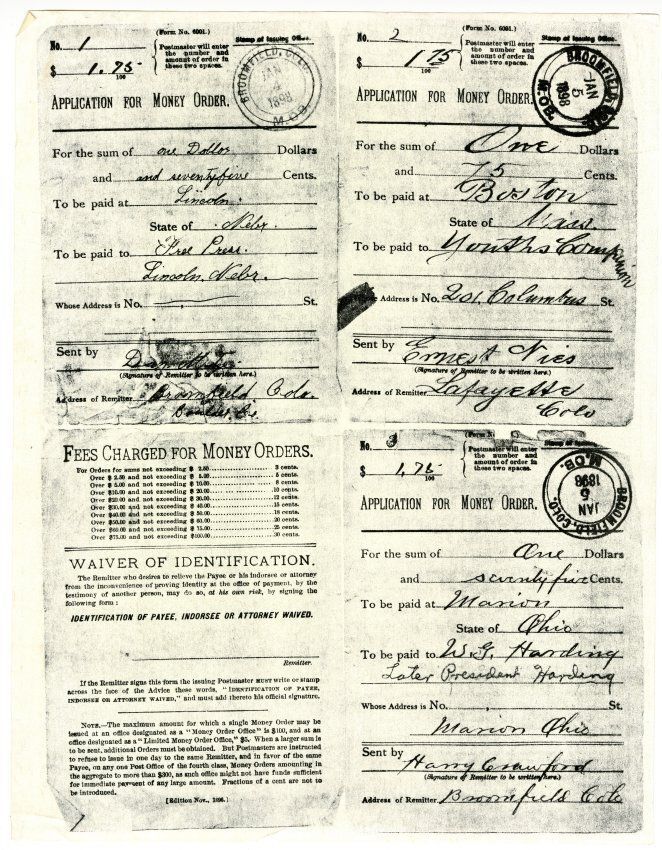 (Form No. 6001.)
No. 1
Postmaster will enter the number and amount of order in these two spaces.
Stamp of Issuing Office.
$ 1.75/100
BROOMFIELD, COLO. JAN 4 1898 M.O.B.
APPLICATION FOR MONEY ORDER.
For the sum of one Dollar Dollars
and and seventyfive Cents.
To be paid at Lincoln.
State of Nebr.
To be paid to Free Press.
Lincoln, Nebr.
WHOSE ADDRESS IS No. St.
Sent by
(Signature of Remitter to be written here.)
Address of Remitter Broomfield, Colo.
(Form No. 6001.)
No. 2
Postmaster will enter the number and amount of order in these two spaces.
Stamp of Issuing Office.
$ 1 75/100
BROOMFIELD, COLO. JAN 5 1898 M.O.B.
APPLICATION FOR MONEY ORDER.
For the sum of One Dollars
and 75 Cents.
To be paid at Boston
State of Mass.
To be paid to Youths Companion
Address is No. 201, Columbus St.
Sent by Ernest Nies
(Signature of Remitter to be written here.)
Address of Remitter Lafayette
Colo
FEES CHARGED FOR MONEY ORDERS.
For Orders for sums not exceeding $ 2.50 3 cents.
Over $ 2.50 and not exceeding $ 5.00 5 cents.
Over $ 5.00 and not exceeding $ 10.00 8 cents.
Over $10.00 and not exceeding $ 20.00 10 cents.
Over $20.00 and not exceeding $ 30.00 12 cents.
Over $30.00 and not exceeding $ 40.00 15 cents.
Over $40.00 and not exceeding $ 50.00 18 cents.
Over $50.00 and not exceeding $ 60.00 20 cents.
Over $60.00 and not exceeding $ 75.00 25 cents.
Over $75.00 and not exceeding $100.00 30 cents.
WAIVER OF IDENTIFICATION.
The Remitter who desires to relieve the Payee or his indorsee or attorney
from the inconvenience of proving identity at the office of payment, by the
testimony of another person, may do so, at his own risk, by signing the
following form:
IDENTIFICATION OF PAYEE, INDORSEE OR ATTORNEY WAIVED.
Remitter.
If the Remitter signs this form the issuing Postmaster MUST write or stamp
across the face of the Advice these words, "IDENTIFICATION OF PAYEE,
INDORSEE OR ATTORNEY WAIVED," and must add thereto his official signature.
NOTE.—The maximum amount for which a single Money Order may be
issued at an office designated as a "Money Order Office" is $100, and at an
office designated as a "Limited Money Order Office," $5. When a larger sum is
to be sent, additional Orders must be obtained. But Postmasters are instructed
to refuse to issue in one day to the same Remitter, and in favor of the same
Payee, on any one Post Office of the fourth class, Money Orders amounting in
the aggregate to more than $300, as such office might not have funds sufficient
for immediate payment of any large amount. Fractions of a cent are not to
be introduced.
[Edition Nov., 1896.]
(Form N
No. 3
Postmaster will enter the number and amount of order in these two spaces.
Stamp of Issuing Office.
$ 1,75/100
BROOMFIELD, COLO. JAN 6 1898 M.O.B.
APPLICATION FOR MONEY ORDER.
For the sum of One Dollars
and seventy five Cents.
To be paid at Marion
State of Ohio
To be paid to W.G. Harding
Later President Harding
WHOSE ADDRESS IS No. St.
Marion Ohio
Sent by Harry Crawford
(Signature of Remitter to be written here.)
Address of Remitter Broomfield Colo